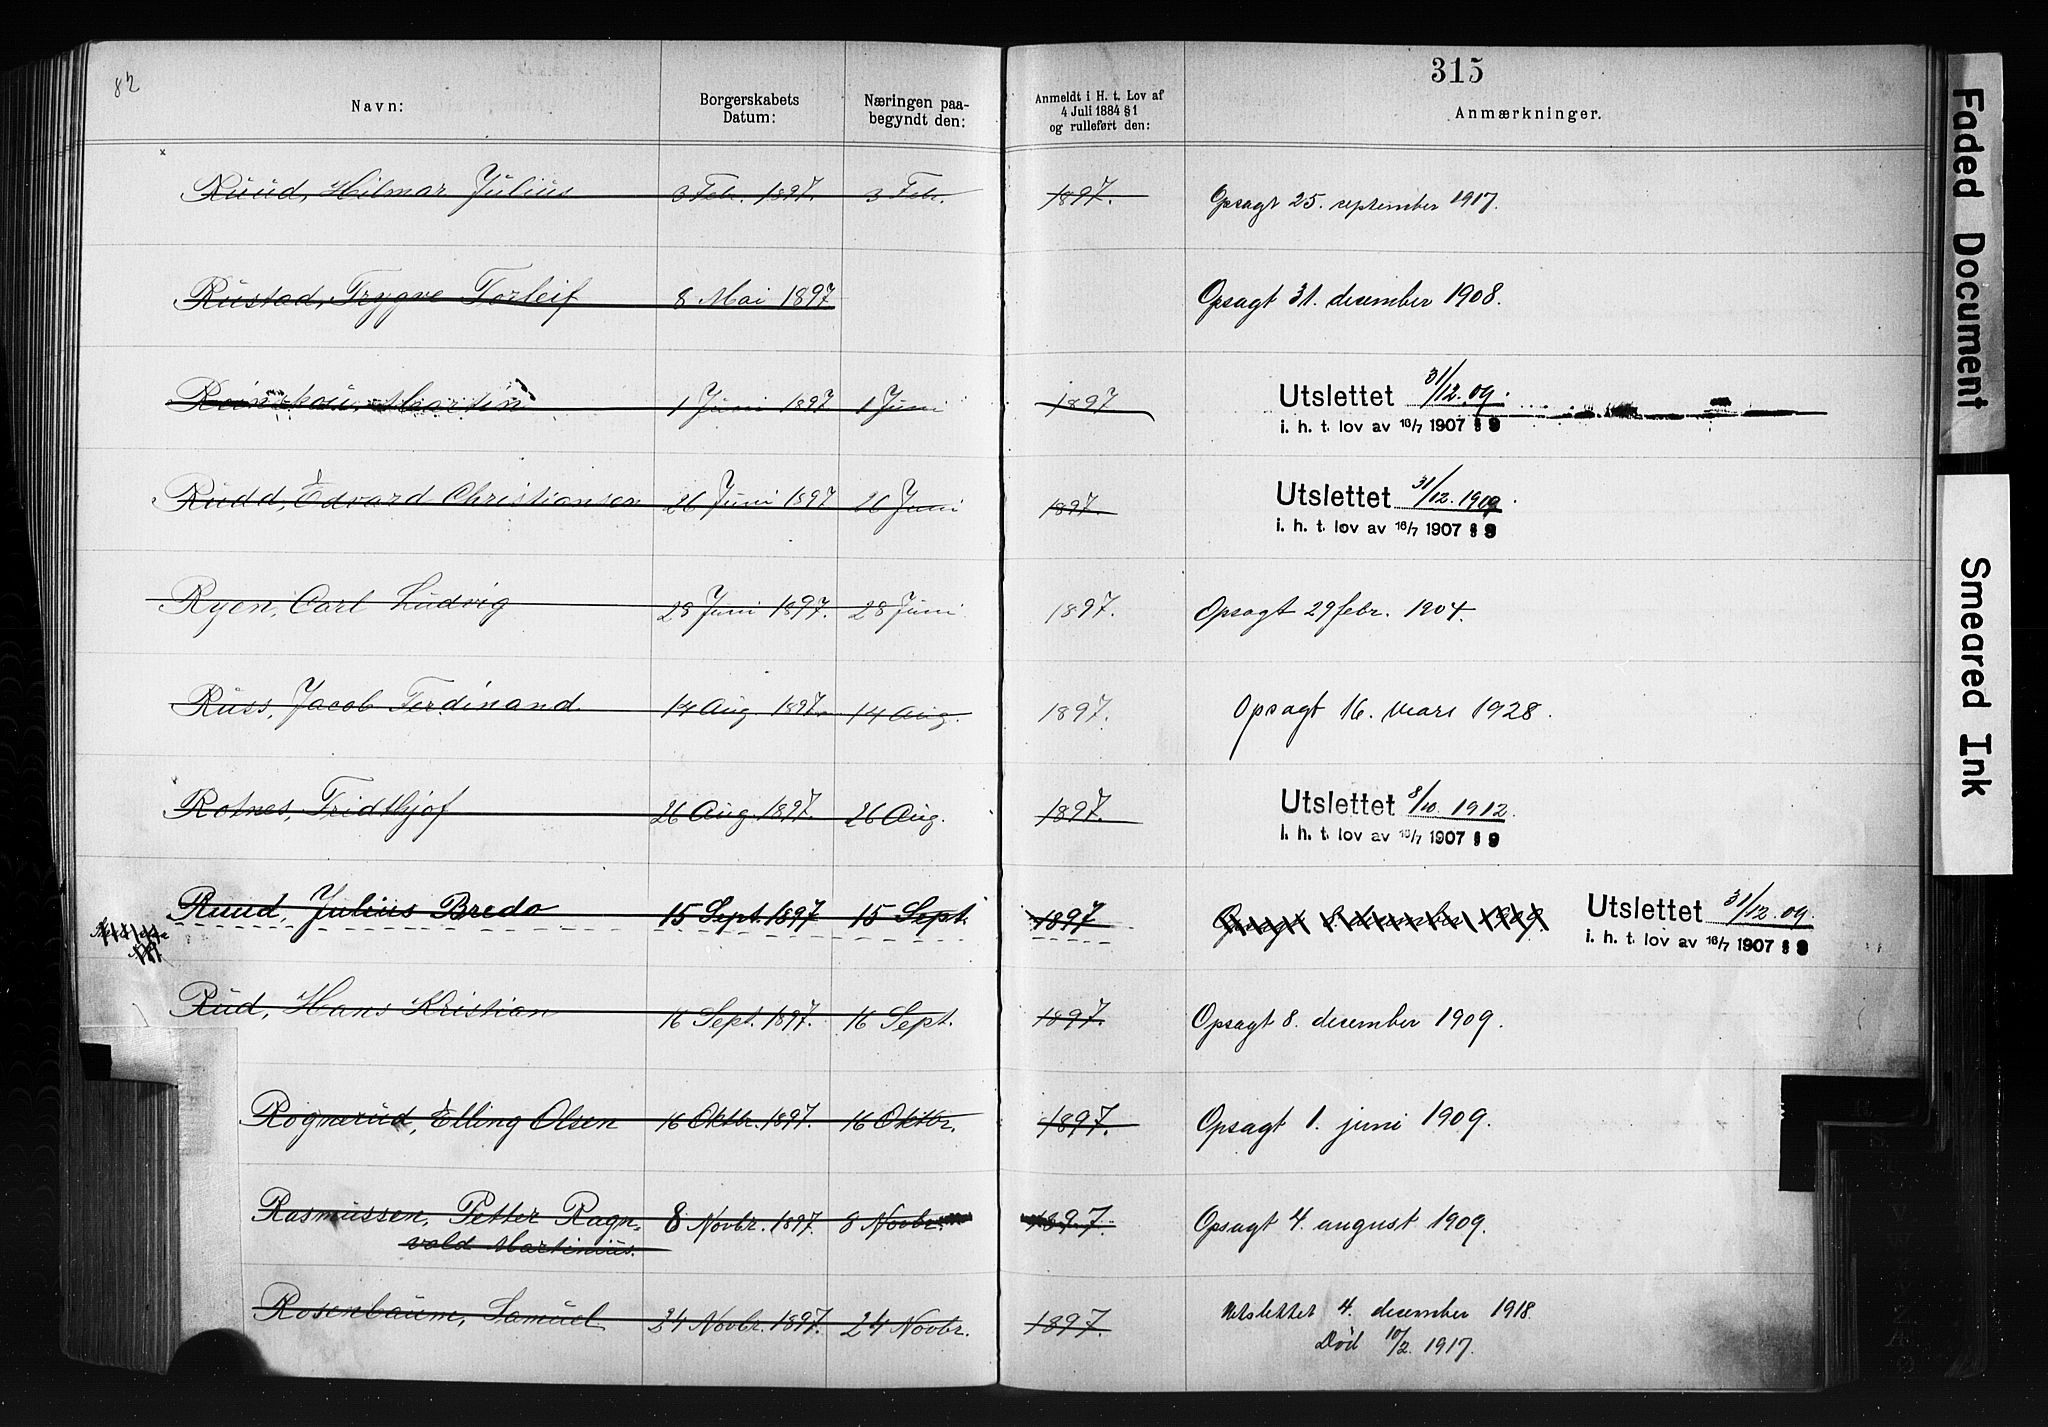 82
315
Navn: Borgerskabets Datum: Næringen paa-begyndt den: Anmeldt i H. t. Lov af 4 Juli 1884 § 1 og rulleført den: Anmærkninger.
Ruud, Hilmar Julius 3 Feb. 1897. 3 Feb. 1897. Opsagt 25. september 1917.
Rustad, Trygve Torleif 8 Mai 1897 Opsagt 31. december 1908.
Martin 1 Juni 1897 1 Juni 1897 Utslettet 31/12. 09.
i. h. t. lov av 16/7 1907 § 9
Rudd, Edvard Christiansen 26 Juni 1897 26 Juni 1897. Utslettet 31/12. 1909.
i. h. t. lov av 16/7 1907 § 9
Ryen, Carl Ludvig 28 Juni 1897. 28 Juni 1897. Opsagt 29 febr. 1904.
Russ, Jacob Ferdinand 14 Aug. 1897. 14 Aug. 1897. Opsagt 16. mars 1928.
Rotnes, Fridthjof 26 Aug. 1897. 26 Aug. 1897. Utslettet 8/10. 1912.
i. h. t. lov av 16/7 1907 § 9
Ruud, Julius Bredo 15 Sept. 1897 15 Sept. 1897 Opsagt 8. december 1909. Utslettet 31/12. 09.
i. h. t. lov av 16/7 1907 § 9
Rud, Hans Kristian 16 Sept. 1897. 16 Sept. 1897. Opsagt 8. december 1909.
Rognerud, Elling Olsen 16 Oktbr. 1897. 16 Oktbr. 1897. Opsagt 1. juni 1909.
Rasmussen, Petter Ragn- 8 Novbr. 1897. 8 Novbr. 1897. Opsagt 4. august 1909.
vald Martinius.
Rosenbaum, Samuel 24 Novbr. 1897. 24 Novbr. 1897. Utslettet 4. december 1918.
Död 10/2. 1917.
Faded Document
Smeared Ink